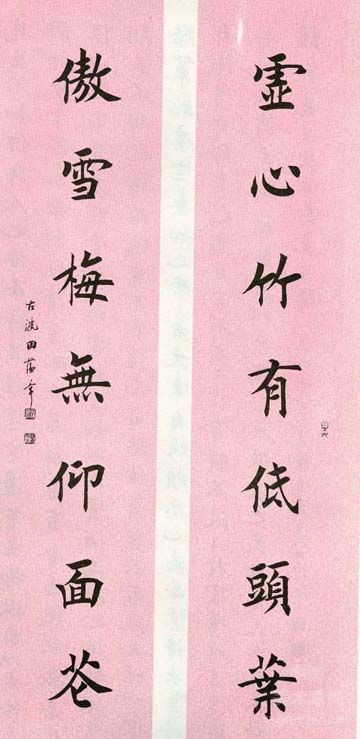 虛心竹有低頭葉
傲雪梅無仰面花
古滬田蘊章